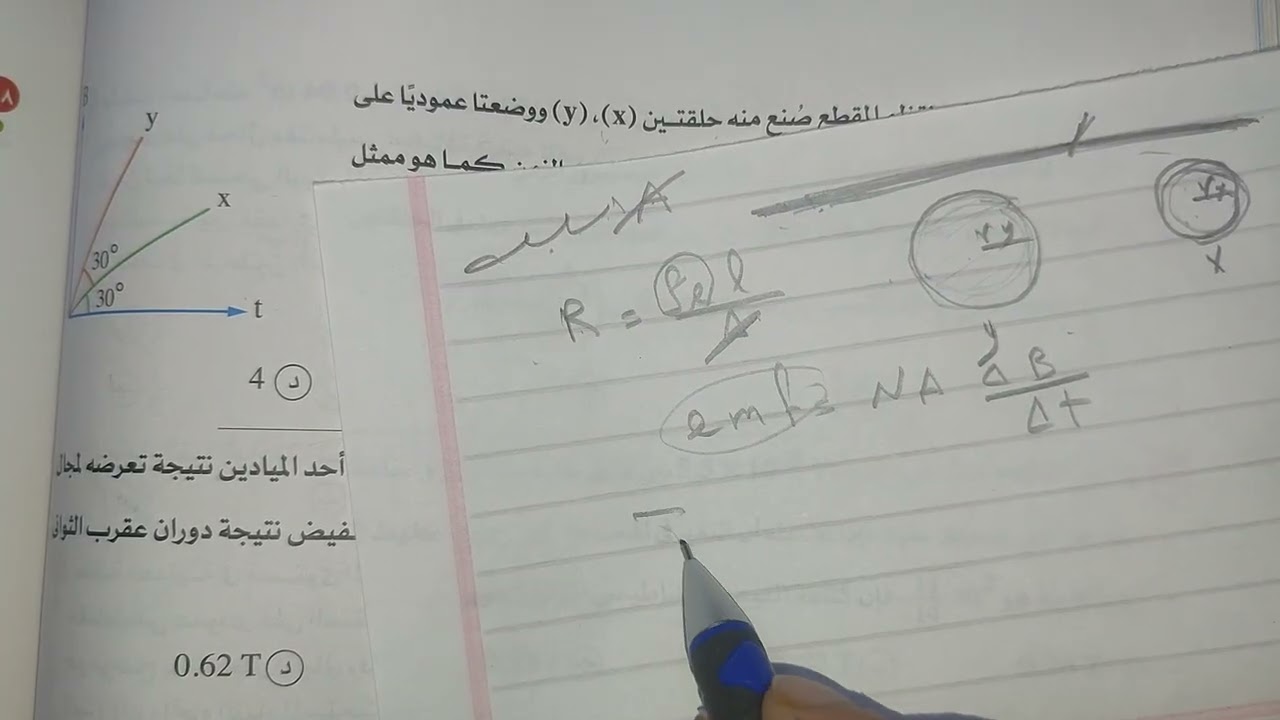 المقطع صُنع منه حلقتين (x)، (y) ووضعتا عموديًا على
كما هو ممثل
y
x
30°
30°
t
4 د
أحد الميادين نتيجة تعرضه لمجال
نتيجة دوران عقرب الثوانى
0.62 T د
٨
R = ρe l / A
emf = NA ΔB / Δt
y
x